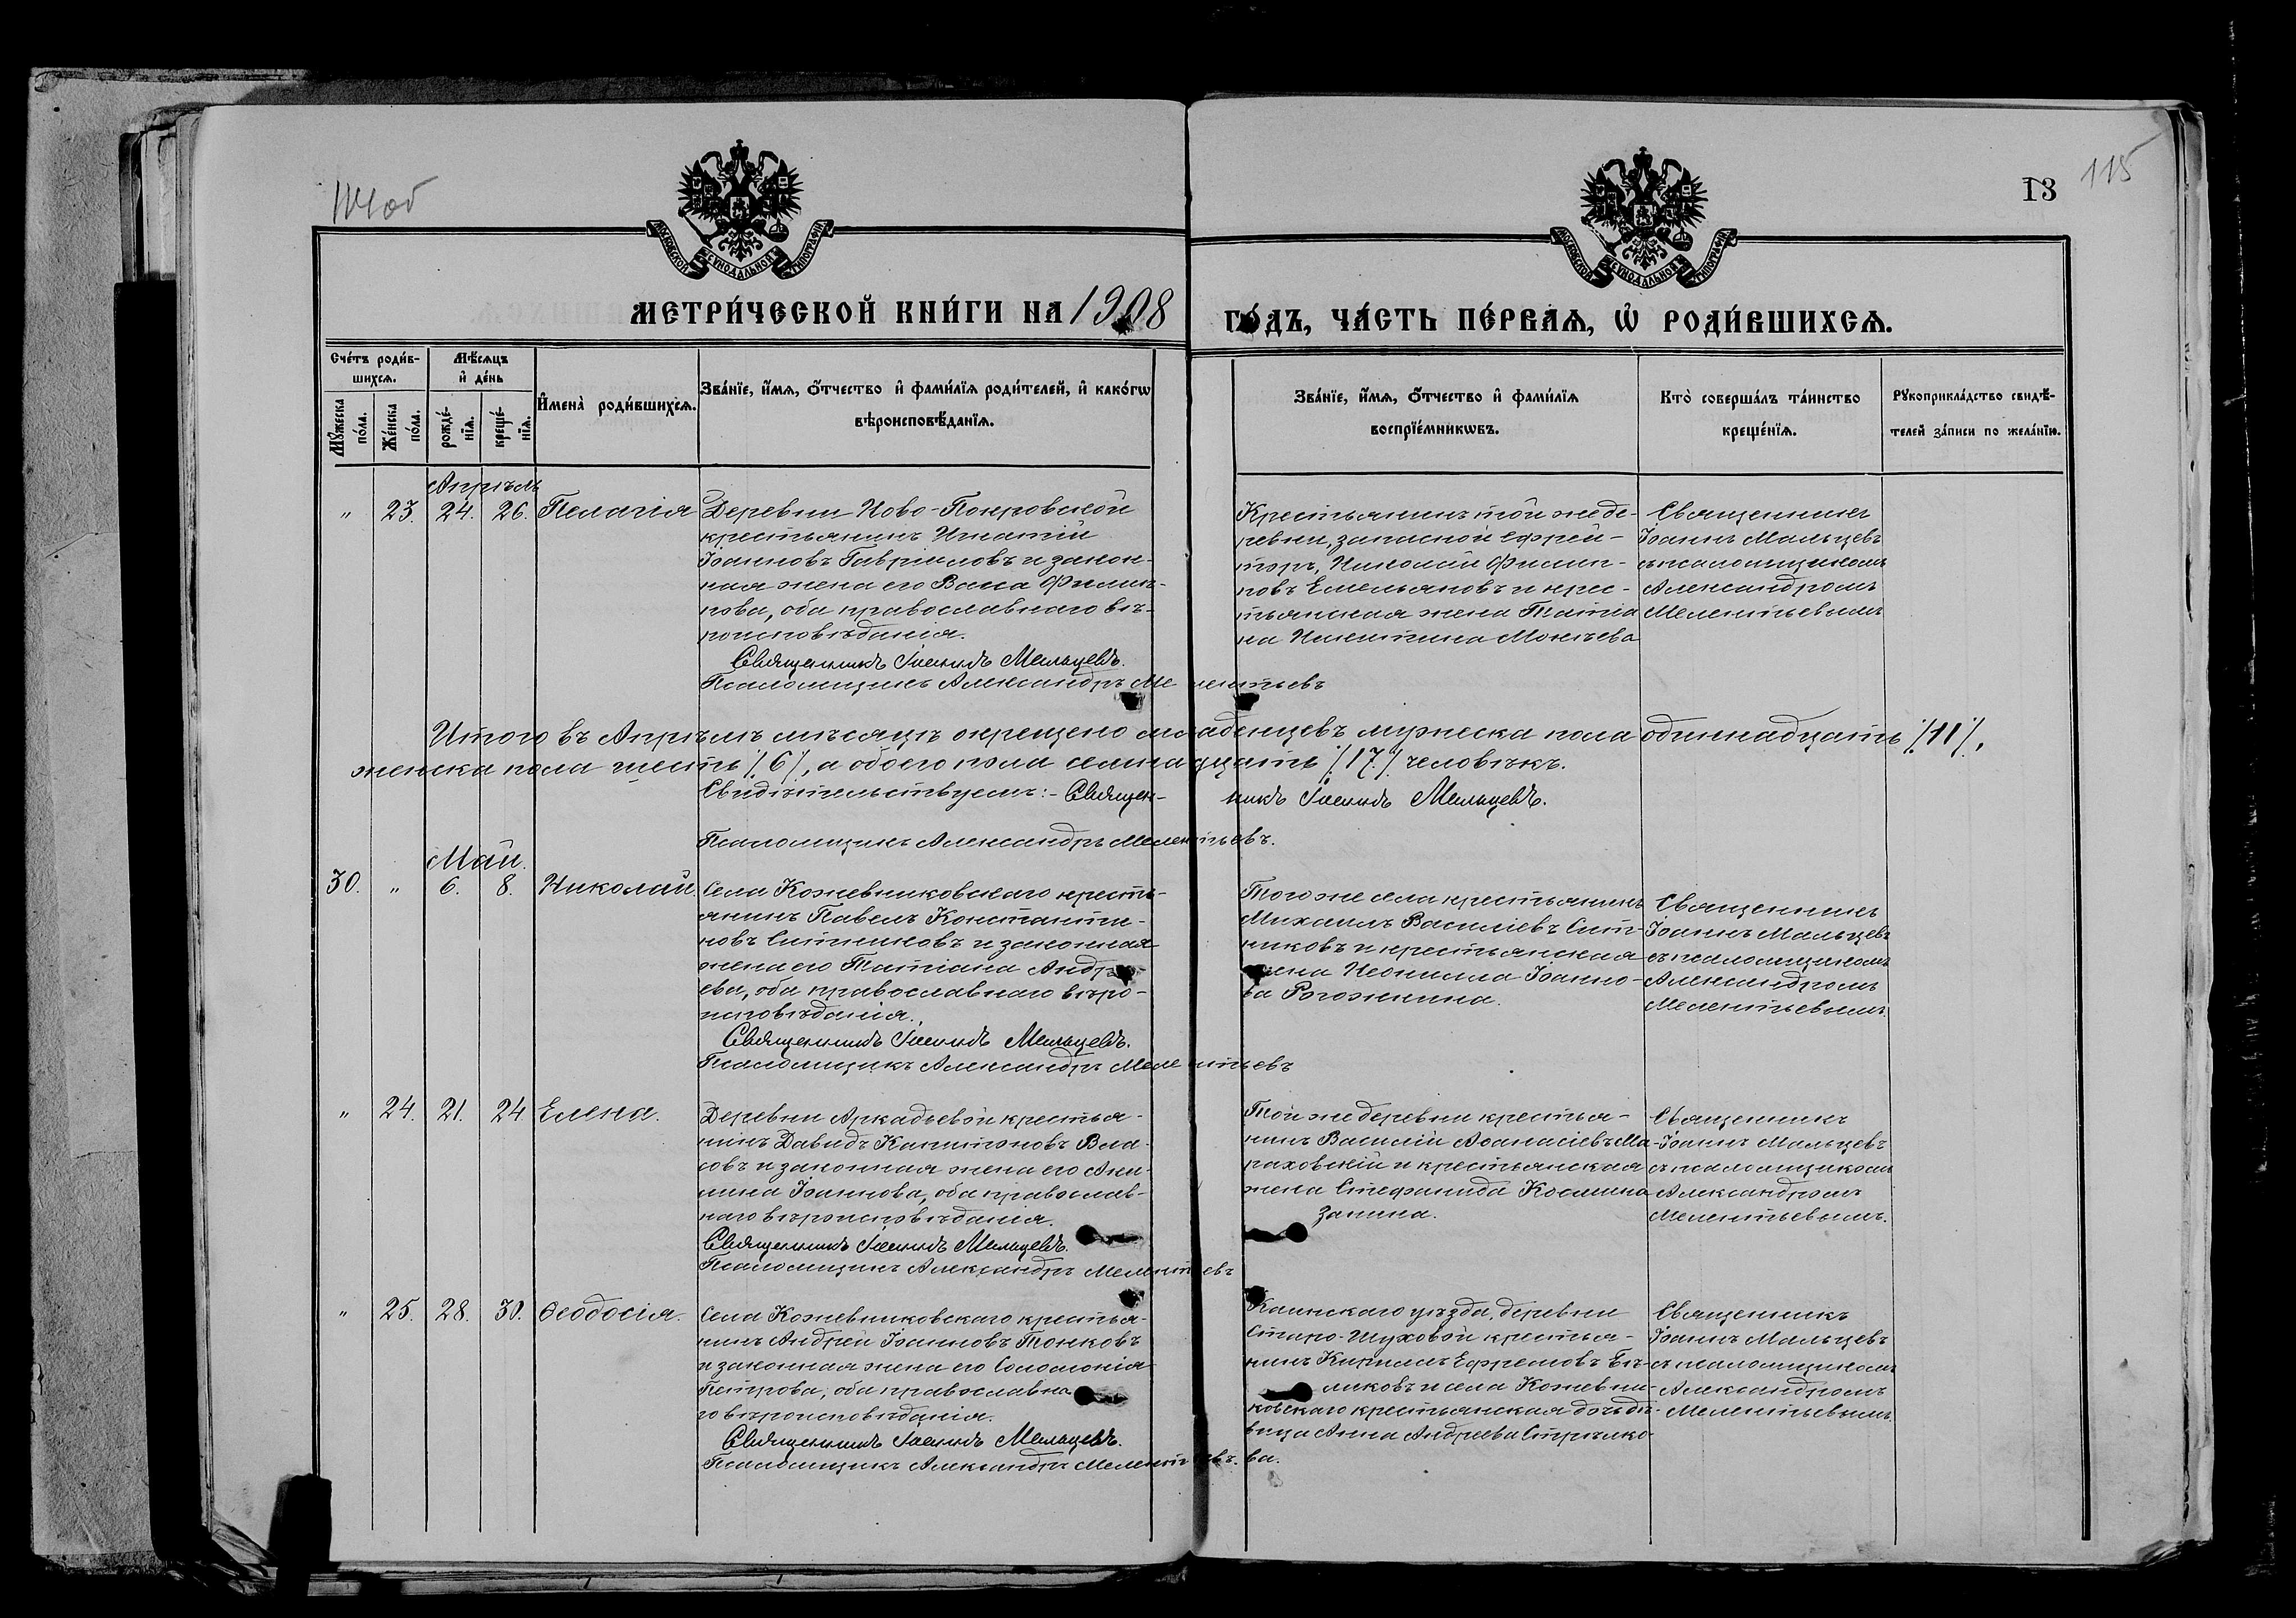 114об
115
13
МОСКОВСКОЙ СѴНОДАЛЬНОЙ ТИПОГРАФІИ
МОСКОВСКОЙ СѴНОДАЛЬНОЙ ТИПОГРАФІИ
МЕТРИ́ЧЕСКОЙ КНИ́ГИ НА 1908 ГО́ДЪ, ЧА́СТЬ ПЕ́РВАѦ, Ѡ҆ РОДИ́ВШИХСѦ.
Сче́тъ роди́в-
шихсѧ.
Мꙋ́жеска
по́ла.
Же́нска
по́ла.
Мѣ́сѧцъ
и҆ де́нь
рожде́-
нїѧ.
креще́-
нїѧ.
И҆мена̀ роди́вшихсѧ.
Зва́нїе, и҆́мѧ, ѻ҆́тчество и҆ фами́лїѧ роди́телей, и҆ како́гѡ
вѣроисповѣ́данїѧ.
Зва́нїе, и҆́мѧ, ѻ҆́тчество и҆ фами́лїѧ
воспрїе́мникѡвъ.
Кто̀ соверша́лъ та́инство
креще́нїѧ.
Рꙋкоприкла́дство свидѣ́-
телей за́писи по жела́нїю.
Апрѣль
" 23. 24. 26. Пелагія
Деревни Ново-Покровской
крестьянинъ Игнатій
Іоанновъ Гавриловъ и закон-
ная жена его Васса Филип-
пова, оба православнаго вѣ-
роисповѣданія.
Священникъ Іоаннъ Мальцевъ.
Псаломщикъ Александръ Мелентьевъ
Крестьянинъ той же де-
ревни, запасной ефрей-
торъ, Николай Филип-
повъ Емельяновъ и крес-
тьянская жена Татіа
на Никитина Мокѣева
Священникъ
Іоаннъ Мальцевъ
съ псаломщикомъ
Александромъ
Мелентьевымъ
Итого въ Апрѣлѣ мѣсяцѣ окрещено младенцевъ мужеска пола одиннадцать /11/,
женска пола шесть /6/, а обоего пола семнадцать /17/ человѣкъ.
Свидѣтельствуемъ:- Священникъ Іоаннъ Мальцевъ.
Псаломщикъ Александръ Мелентьевъ.
Май.
30. " 6. 8. Николай.
Села Кожевниковскаго кресть-
янинъ Павелъ Константи-
новъ Ситниковъ и законная
жена его Татіана Андре-
ева, оба православнаго вѣро-
исповѣданія.
Священникъ Іоаннъ Мальцевъ.
Псаломщикъ Александръ Мелентьевъ
Того же села крестьянинъ
Михаилъ Василіевъ Сит-
никовъ и крестьянская
жена Неонилла Іоанно-
ва Рогожкина.
Священникъ
Іоаннъ Мальцевъ
съ псаломщикомъ
Александромъ
Мелентьевымъ.
" 24. 21. 24 Елена.
Деревни Аркадьевой крестья-
нинъ Давидъ Капитоновъ Вла-
совъ и законная жена его Аки-
лина Іоаннова, оба православ-
наго вѣроисповѣданія.
Священникъ Іоаннъ Мальцевъ.
Псаломщикъ Александръ Мелентьевъ
Той же деревни крестья-
нинъ Василій Аѳанасіевъ Ма-
раховскій и крестьянская
жена Стефанида Космина
Занина.
Священникъ
Іоаннъ Мальцевъ
съ псаломщикомъ
Александромъ
Мелентьевымъ.
" 25. 28. 30. Ѳеодосія.
Села Кожевниковскаго крестья-
нинъ Андрей Іоанновъ Тонковъ
и законная жена его Соломонія
Петрова, оба православна
го вѣроисповѣданія.
Священникъ Іоаннъ Мальцевъ.
Псаломщикъ Александръ Мелентьевъ.
Каинскаго уѣзда, деревни
Старо-Шуховой крестья-
нинъ Кириллъ Ефремовъ Бѣ-
ликовъ и села Кожевни-
ковскаго крестьянская дочь дѣ-
вица Анна Андреева Стрѣлко-
ва.
Священникъ
Іоаннъ Мальцевъ
съ псаломщикомъ
Александромъ
Мелентьевымъ.